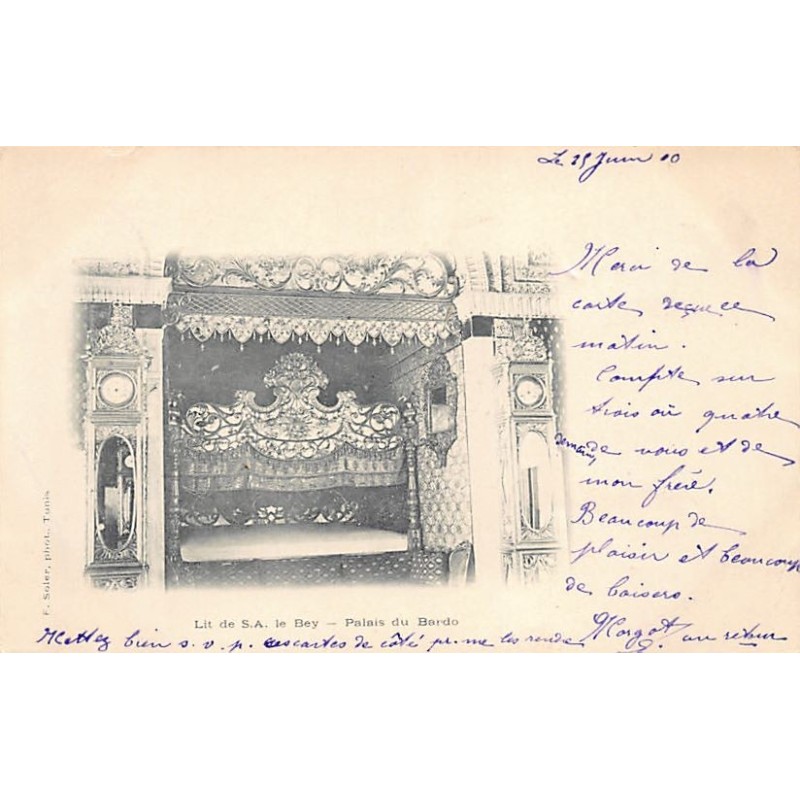 Le 25 Juin 00
Merci de la
carte reçue ce
matin.
Compte sur
trois où quatre
demain, de vous et de
mon frère.
Beaucoup de
plaisir et beaucoup
de baisers.
Margot
F. Soler, phot., Tunis
Lit de S.A. le Bey — Palais du Bardo
Mettez bien s. v. p. ces cartes de côté pr. me les rendre au retour